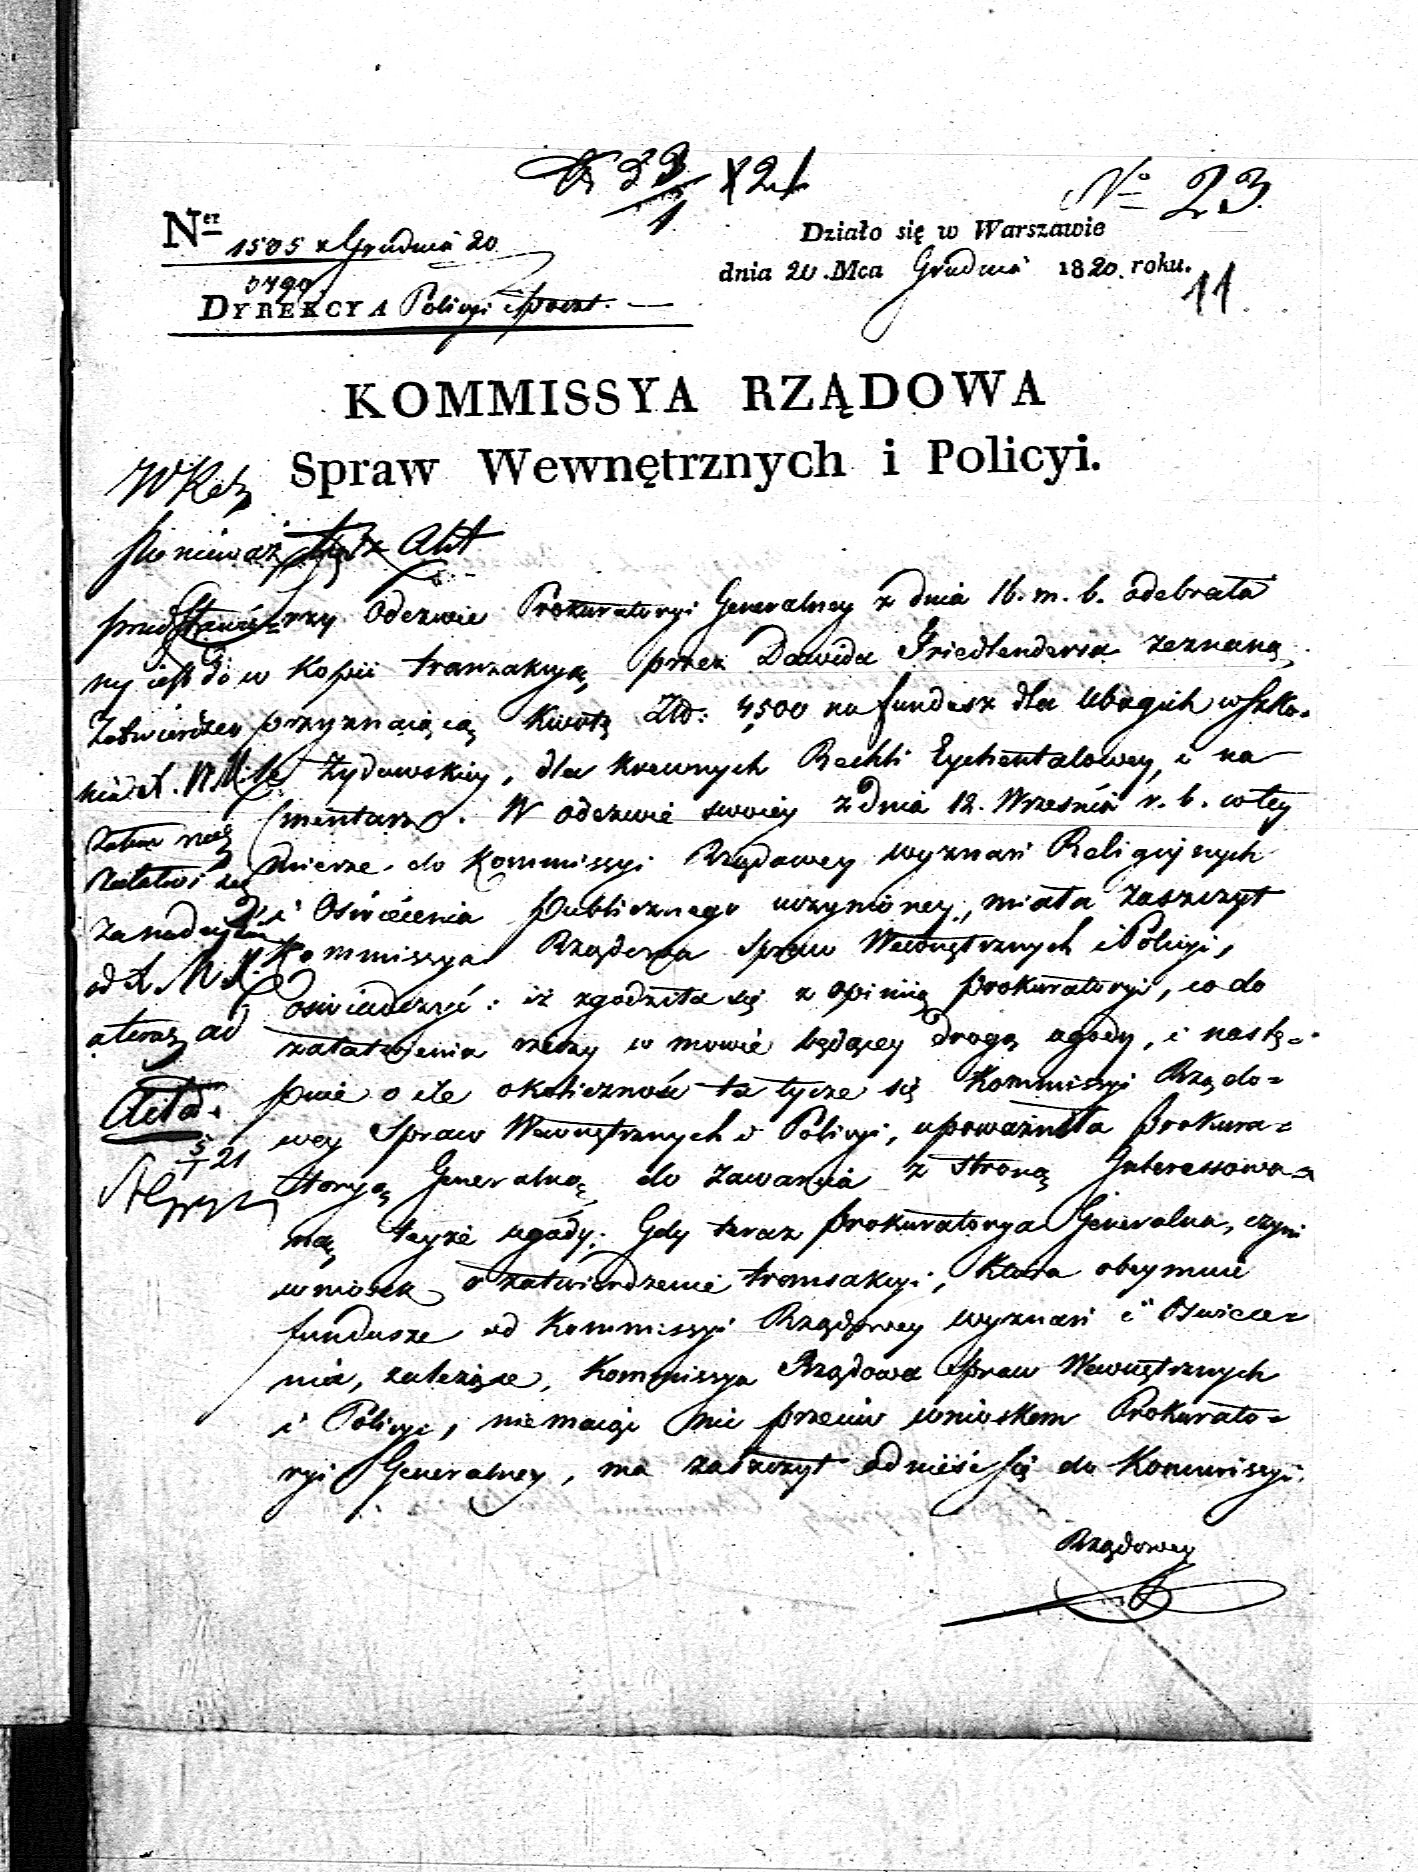 23/1 821
Nº 23.
Ner 1505 x Grudnia 20
Działo się w Warszawie
dnia 20. Mca Grudnia 1820. roku.
11.
DYREKCYA Policyi i poczt. —
KOMMISSYA RZĄDOWA
Spraw Wewnętrznych i Policyi.
Ponieważ Akt
przedstawio-
ny jest do
Zatwierdze-
nia
zatem
załatwi się
za nadejściem
od
a teraz ad
Acta.
5/1 21
Przy Odezwie Prokuratoryi Generalney z dnia 16. m. b. odebrała
w Kopii tranzakcyą, przez Dawida Friedlendera zeznaną,
przyznaiącą Kwotę Złt: 4,500 na fundusz dla Ubogich w Szko-
le Żydowskiey, dla krewnych Rechli Eychentalowey, i na
Cmentarz. W odezwie swoiey z dnia 12. Września r. b. w tey
mierze do Kommissyi Rządowey wyznań Religijnych
i Oświecenia publicznego uczynioney, miała zaszczyt
Kommissya Rządowa Spraw Wewnętrznych i Policyi,
oświadczyć: iż zgodziła się z opinią prokuratoryi, co do
załatwienia rzeczy w mowie będącey drogą ugody, i nastę-
pnie o ile okoliczność ta tycze się Kommissyi Rządo-
wey Spraw Wewnętrznych i Policyi, upoważniła Prokura-
toryą Generalną, do zawarcia z stroną Interessowa-
ną, teyże ugody. Gdy teraz prokuratorya Generalna, czyni
wniosek o zatwierdzenie transakcyi, która obeymuie
fundusze od Kommissyi Rządowey wyznań i Oświece-
nia, zależące, Kommissya Rządowa Spraw Wewnętrznych
i Policyi, nie maiąc nic przeciw wnioskom Prokurato-
ryi Generalney, ma zaszczyt odnieść się do Kommissyi
Rządowey